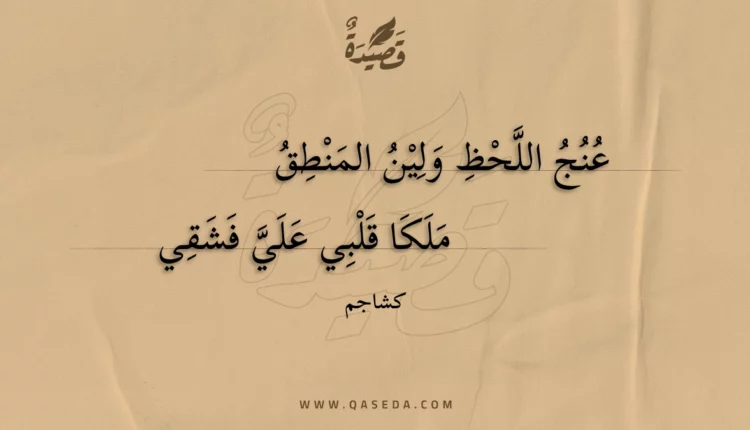 قَصِيْدَةٌ
عُنُجُ اللَّحْظِ وَلِيْنُ المَنْطِقُ
مَلَكَا قَلْبِي عَلَيَّ فَشَقِي
كشاجم
WWW.QASEDA.COM